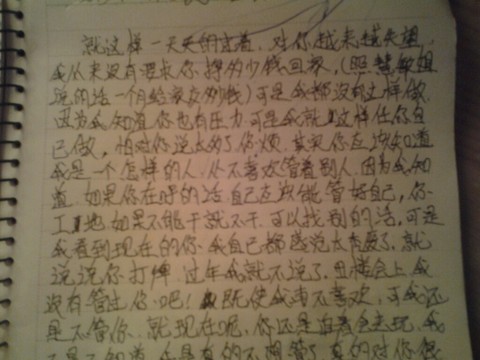 就这样一天天的过着,对你越来越失望
我从来没有要求你挣多少钱回家,(照慧敏姐
说的话一个月给家友多少钱)可是我都没有这样做
因为我知道你也有压力,可是我就这样任你自
己做,怕对你说太多了你烦,其实你应该知道
我是一个怎样的人,从不喜欢管着别人,因为我知
道,如果你在呼的话,自己应该能管好自己,你
工地如果不能干就不干,可以找别的活,可是
我看到现在的你,我自己都感觉太委屈了,就
说说你打牌,过年我就不说了,田楼会上我
没有管过你吧!即使我再不喜欢,可我还
是不管你,就现在呢,你还是追着会去玩,我
不是不知道,我是真的不想管了,真的对你